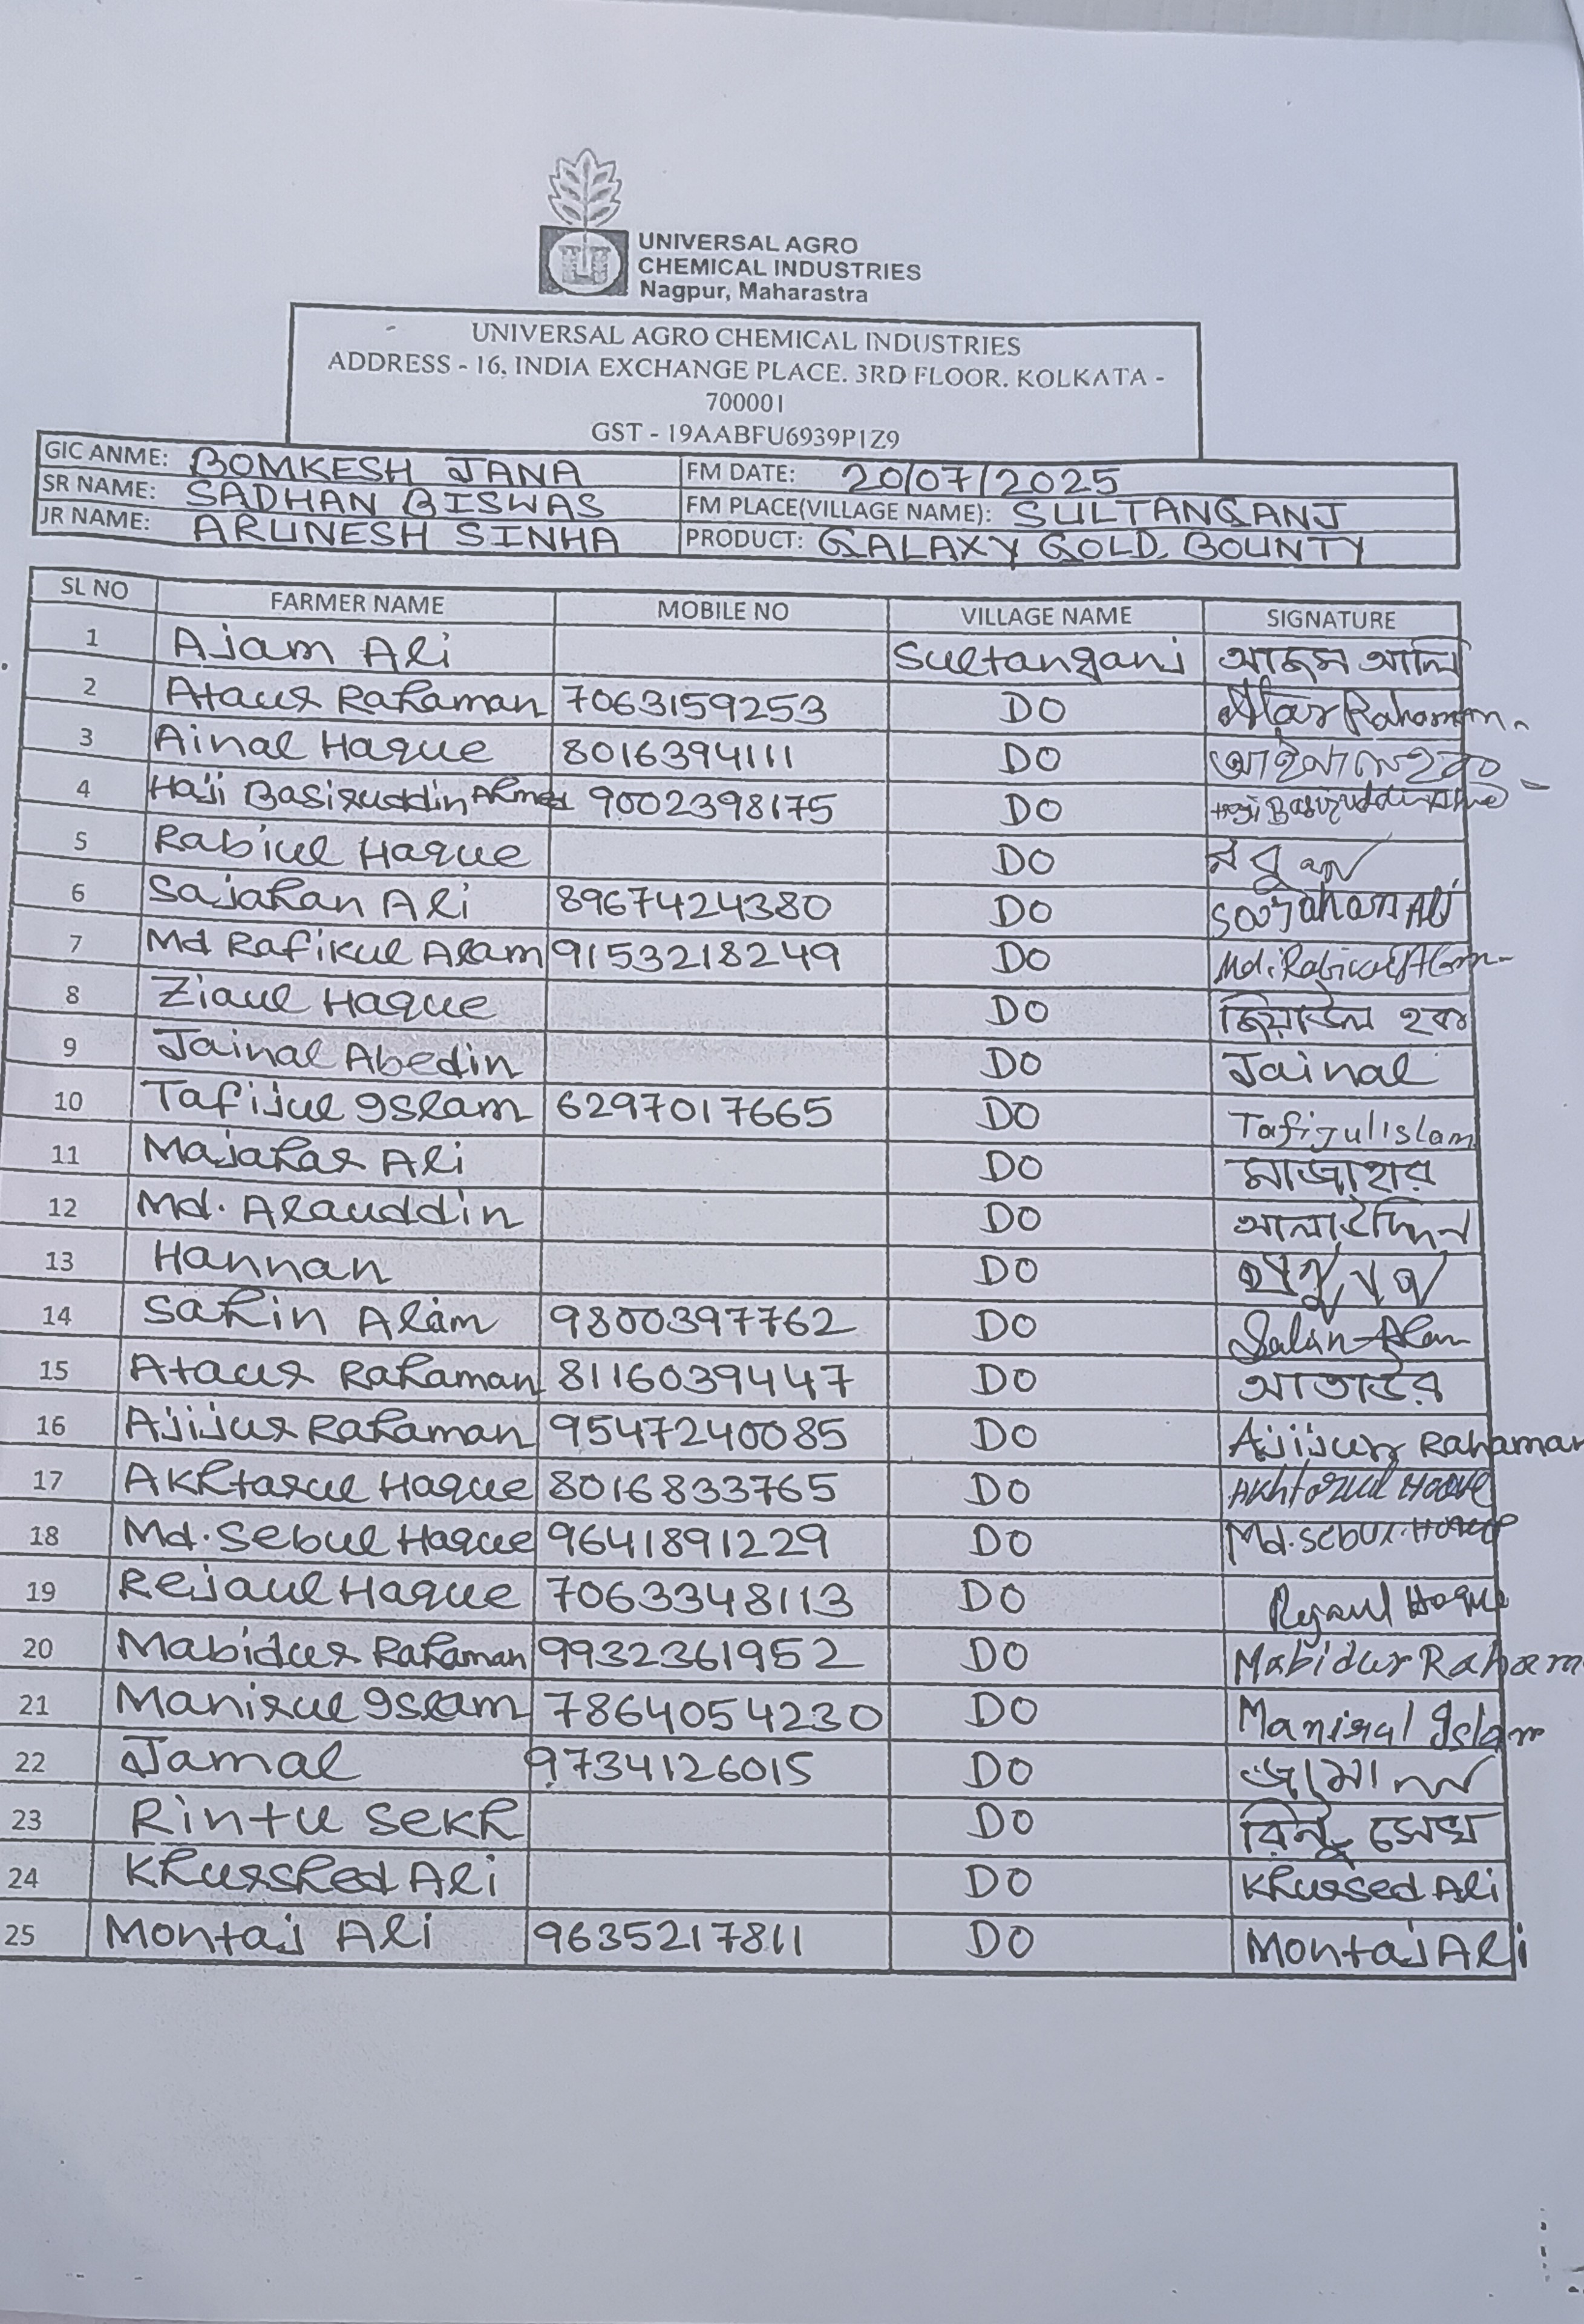 UNIVERSAL AGRO
CHEMICAL INDUSTRIES
Nagpur, Maharastra
UNIVERSAL AGRO CHEMICAL INDUSTRIES
ADDRESS - 16, INDIA EXCHANGE PLACE. 3RD FLOOR. KOLKATA -
700001
GST - 19AABFU6939P1Z9
GIC ANME: BOMKESH JANA FM DATE: 20/07/2025
SR NAME: SADHAN BISWAS FM PLACE(VILLAGE NAME): SULTANGANJ
JR NAME: ARUNESH SINHA PRODUCT: GALAXY GOLD, BOUNTY
SL NO FARMER NAME MOBILE NO VILLAGE NAME SIGNATURE
1 Ajam Ali Sultanganj আজম আলি
2 Ataur Rahaman 7063159253 DO Atar Rahaman
3 Ainal Haque 8016394111 DO আইনাল হক
4 Haji Basiruddin Ahmed 9002398175 DO Haji Basiruddin Ahmed
5 Rabiul Haque DO
6 Sajahan Ali 8967424380 DO Sajahan Ali
7 Md Rafikul Alam 9153218249 DO Md. Alam
8 Ziaul Haque DO জিয়াউল হক
9 Jainal Abedin DO Jainal
10 Tafijul Islam 6297017665 DO Tafijul islam
11 Majahar Ali DO মাজাহার
12 Md. Alauddin DO আলাউদ্দিন
13 Hannan DO
14 Sahin Alam 9800397762 DO Sahin Alam
15 Ataur Rahaman 8116039447 DO আতাউর
16 Ajijur Rahaman 9547240085 DO Ajijur Rahaman
17 Akhtarul Haque 8016833765 DO Akhtarul Haque
18 Md. Sebul Haque 9641891229 DO Md. Sebul Haque
19 Rejaul Haque 7063348113 DO Rejaul Haque
20 Mabidur Rahaman 9932361952 DO Mabidur Raham
21 Manirul Islam 7864054230 DO Manirul Islam
22 Jamal 9734126015 DO জামাল
23 Rintu Sekh DO রিন্টু সেখ
24 Khurshed Ali DO Khursed Ali
25 Montaj Ali 9635217811 DO Montaj Ali